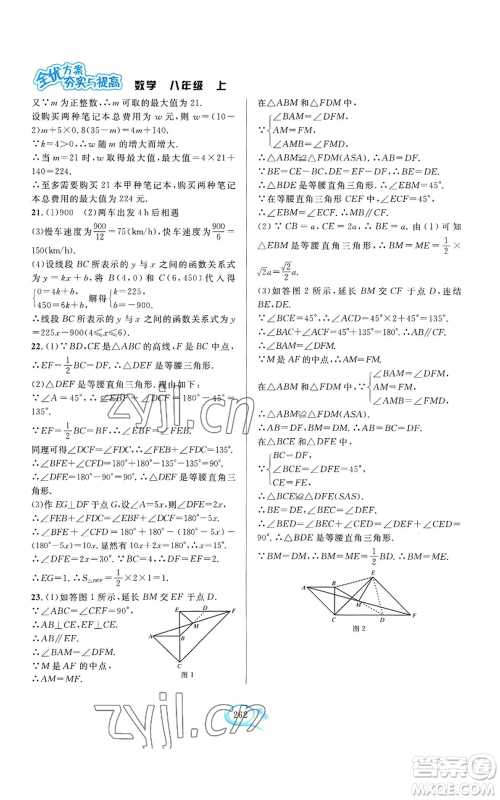 全优方案
夯实与提高 数学 八年级 上
又∵m为正整数,∴m可取的最大值为21.
设购买两种笔记本总费用为w元,则w=(10-
2)m+5×0.8(35-m)=4m+140.
∵k=4>0,∴w随m的增大而增大.
∴当m=21时,w取得最大值,最大值=4×21+140=
224.
∴至多需要购买21本甲种笔记本,购买两种笔记本
总费用的最大值为224元.
21.(1)900 (2)两车出发4h后相遇
(3)慢车速度为900/12=75(km/h),快车速度为900/6
=150(km/h).
(4)设线段BC所表示的y与x之间的函数关系式
为y=kx+b,将B(4,0)和C(6,450)代入,得
{0=4k+b, 450=6k+b, 解得{k=225, b=-900.
∴线段BC所表示的y与x之间的函数关系式为
y=225x-900(4≤x≤6).
22.(1)∵BD,CE是△ABC的高线,F是BC中点,
∴DF=EF=1/2BC,∴△DEF是等腰三角形.
(2)△DEF是等腰直角三角形.理由如下:
∵∠A=45°,∴∠DCF+∠EBF=180°-45°=
135°.
∵EF=1/2BC=BF,∴∠BEF=∠EBF.
同理可得∠DCF=∠CDF,∴∠DCF+∠CDF+
∠BFE+∠CFD=180°+180°-135°-135°=90°.
∴∠DFE=180°-90°=90°.∴△DEF是等腰直角三
角形.
(3)作EG⊥DF于点G,设∠A=5x,∠DFE=2x,
∴∠FEB+∠FDC=∠FBE+∠FCD=180°-5x.
∴∠BFE+∠CFD=180°+180°-(180°-5x)-
(180°-5x)=10x.显然有10x+2x=180°,∴x=15°.
∴∠DFE=2x=30°.∵DF=EF=1/2BC=2,
∴EG=1.∴S△DEF=1/2×2×1=1.
23.(1)如答图1所示,延长BM交EF于点D,
∵∠ABC=∠CEF=90°,
∴AB⊥CE,EF⊥CE.
∴AB∥EF.
∴∠BAM=∠DFM.
∵M是AF的中点,
∴AM=MF.
图1
在△ABM和△FDM中,
∵{∠BAM=∠DFM, AM=FM, ∠AMB=∠FMD,
∴△ABM≌△FDM(ASA).∴AB=DF.
∵BE=CE-BC,DE=EF-DF,∴BE=DE.
∴△BDE是等腰直角三角形.∴∠EBM=45°.
∵在等腰直角三角形CEF中,∠ECF=45°,
∴∠EBM=∠ECF.∴MB∥CF.
(2)∵CB=a,CE=2a,∴BE=a.由(1)可知
△EBM是等腰直角三角形,∴BM=ME=1/2×
√2a=√2/2a.
(3)如答图2所示,延长BM交CF于点D,连结
BE,DE.
∵∠BCE=45°,
∴∠ACD=45°×2+45°=135°.
∴∠BAC+∠ACF=45°+135°=180°.
∴AB∥CF.∴∠BAM=∠DFM.
∴M是AF的中点,∴AM=FM.
在△ABM和△FDM中,∵{∠BAM=∠DFM, AM=FM, ∠AMB=∠FMD,
∴△ABM≌△FDM(ASA).
∴AB=DF,BM=DM.∴AB=BC=DF.
∵在△BCE和△DFE中,
{BC=DF, ∠BCE=∠DFE, CE=FE,
∴△BCE≌△DFE(SAS).
∴BE=DE,∠BEC=∠DEF.
∴∠BED=∠BEC+∠CED=∠DEF+∠CED=
∠CEF=90°.
∴△BDE是等腰直角三角形.
又∵BM=DM,∴BM=ME=1/2BD.
∴BM=ME.
图2
262
zyjl.cn
zyjl.cn